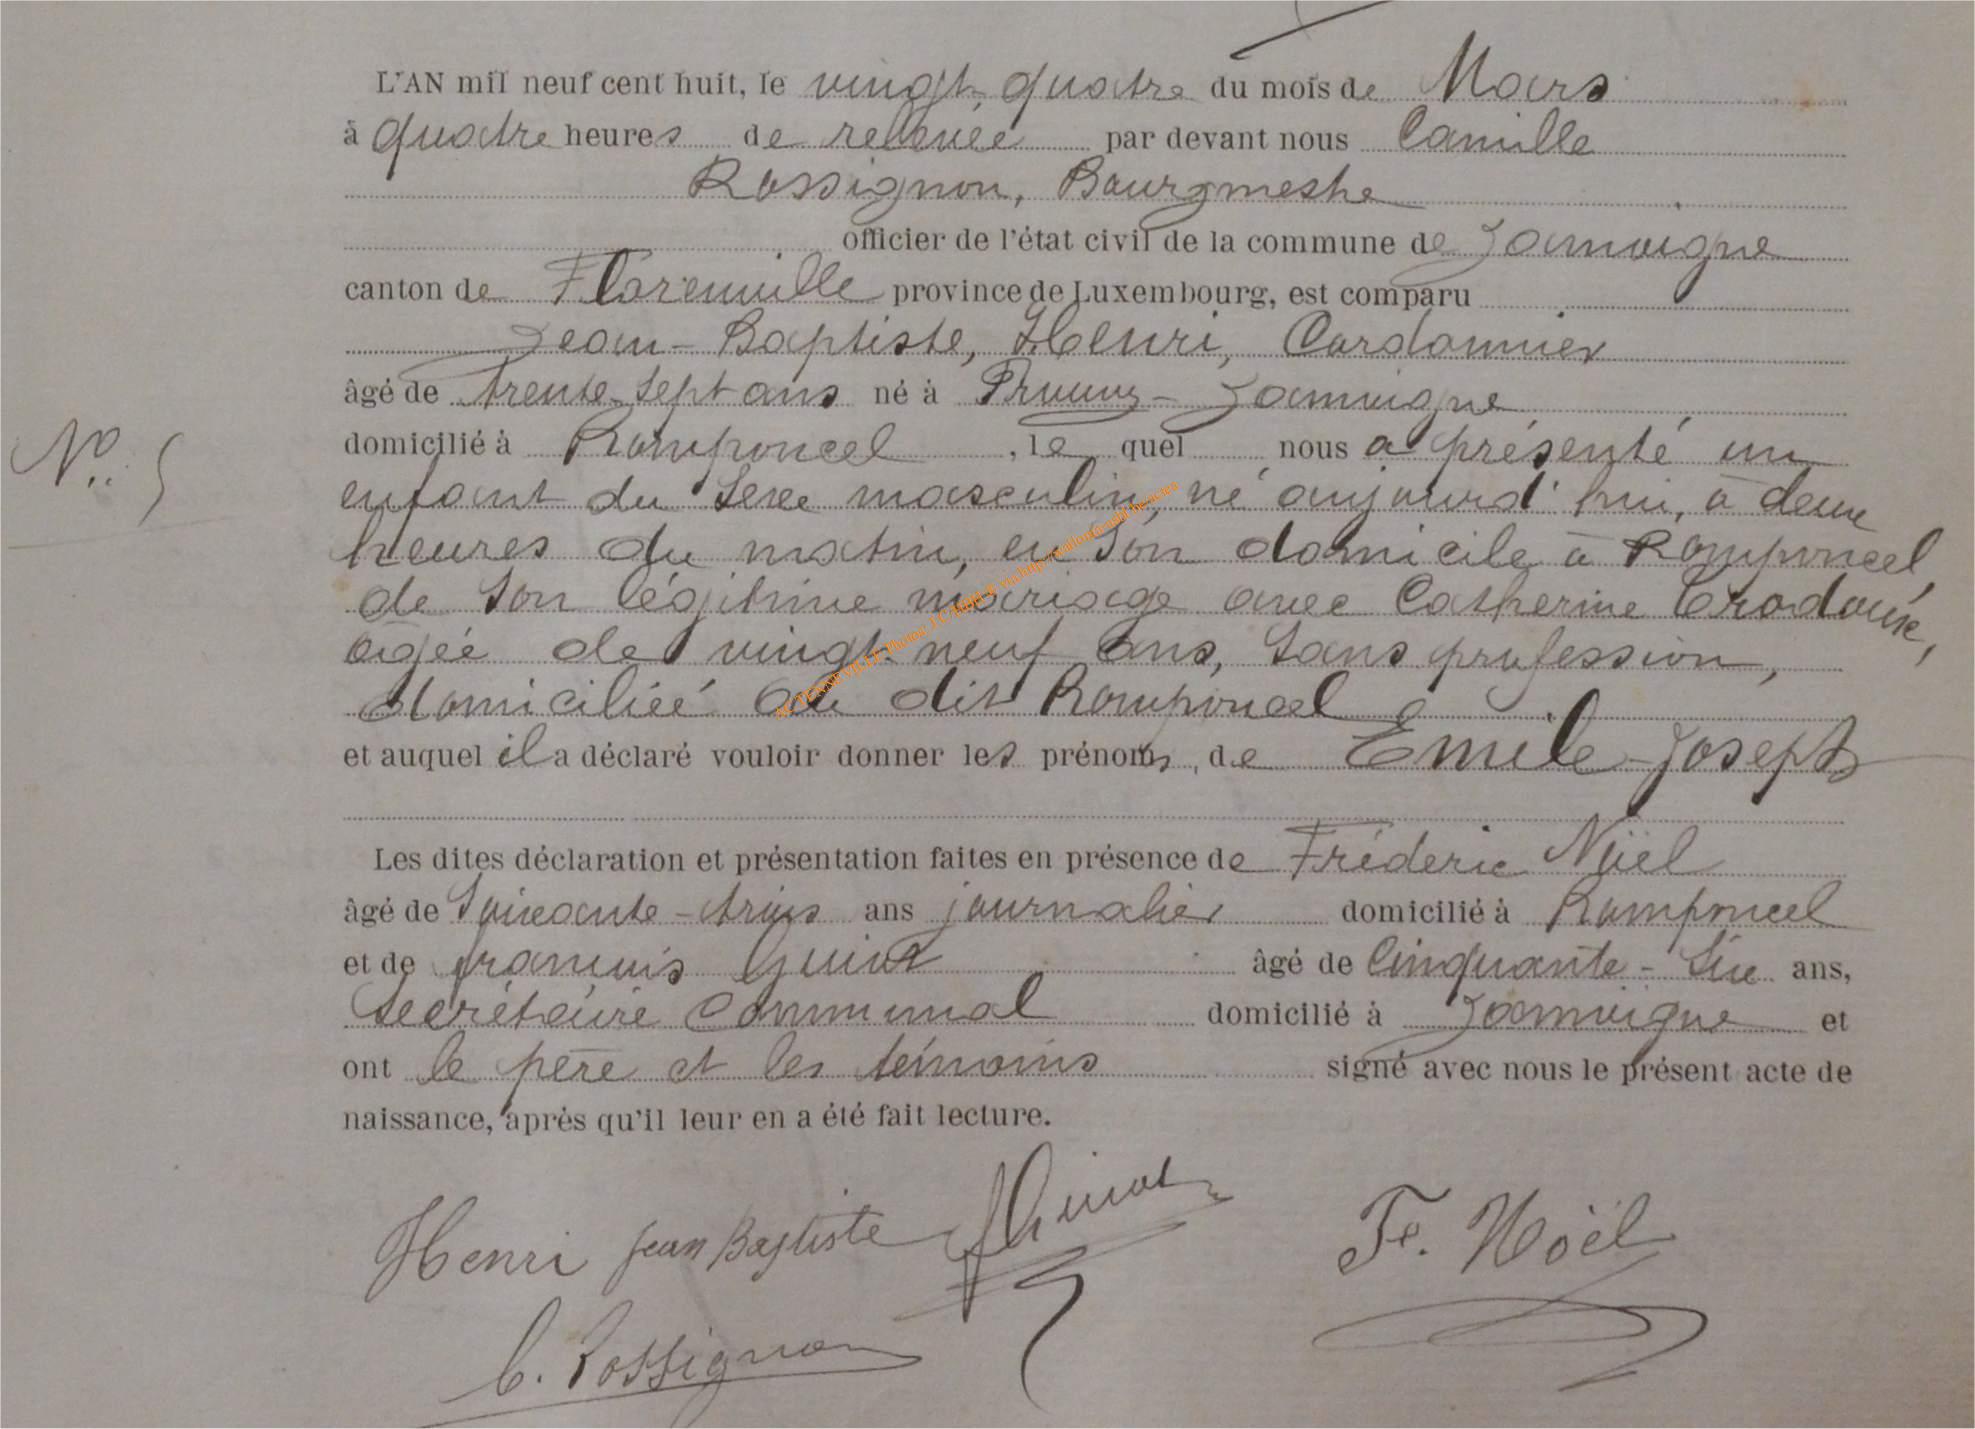 L'AN mil neuf cent huit, le vingt-quatre du mois de Mars
à quatre heures de relevée par devant nous Camille
Rossignon, Bourgmestre
officier de l'état civil de la commune de Jamoigne
canton de Florenville province de Luxembourg, est comparu
Jean-Baptiste, Henri, Cordonnier
âgé de trente-sept ans né à Prouvy-Jamoigne
domicilié à Romponcel, lequel nous a présenté un
N°. 5
enfant du sexe masculin, né aujourd'hui, à deux
heures du matin, en son domicile à Romponcel,
de son légitime mariage avec Catherine
âgée de vingt-neuf ans, sans profession,
domiciliée au dit Romponcel
et auquel il a déclaré vouloir donner les prénoms de Emile-Joseph
Les dites déclaration et présentation faites en présence de Fréderic Noël
âgé de soixante-trois ans journalier domicilié à Romponcel
et de François Guiot âgé de cinquante-six ans,
secrétaire communal domicilié à Jamoigne et
ont le père et les témoins signé avec nous le présent acte de
naissance, après qu'il leur en a été fait lecture.
Henri Jean Baptiste F Guiot Fc. Noël
C. Rossignon